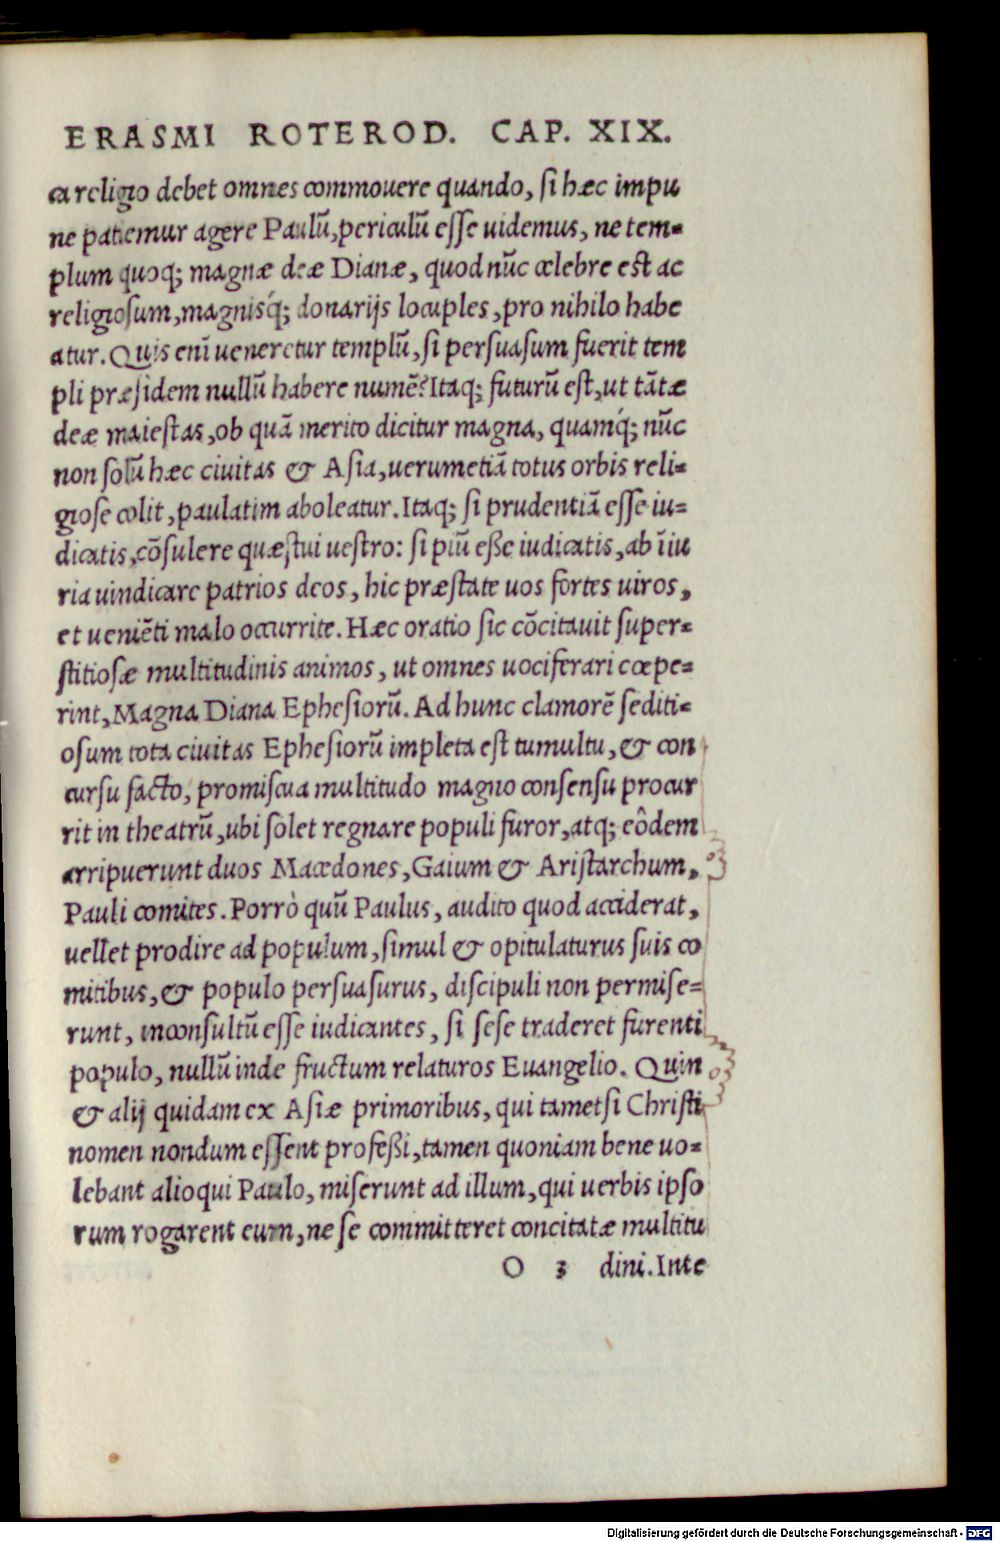 ERASMI ROTEROD. CAP. XIX.
ca religio debet omnes commouere quando, ſi hæc impu
ne patiemur agere Paulū, periculū eſſe uidemus, ne tem=
plum quoq; magnæ deæ Dianæ, quod nūc celebre eſt ac
religioſum, magnisq́; donarijs locuples, pro nihilo habe
atur. Quis enī ueneretur templū, ſi perſuaſum fuerit tem
pli præſidem nullū habere numē? Itaq; futurū eſt, ut tātæ
deæ maieſtas, ob quā merito dicitur magna, quamq́; nūc
non ſolū hæc ciuitas & Aſia, uerumetiā totus orbis reli=
gioſe colit, paulatim aboleatur. Itaq; ſi prudentiā eſſe iu=
dicatis, cōſulere quæſtui ueſtro: ſi piū eße iudicatis, ab īiu
ria uindicare patrios deos, hic præſtate uos fortes uiros,
et ueniēti malo occurrite. Hæc oratio ſic cōcitauit ſuper=
ſtitioſæ multitudinis animos, ut omnes uociferari cœpe=
rint, Magna Diana Epheſiorū. Ad hunc clamorē ſediti=
oſum tota ciuitas Epheſiorū impleta eſt tumultu, & con
curſu facto, promiſcua multitudo magno conſenſu procur
rit in theatrū, ubi ſolet regnare populi furor, atq; eôdem
arripuerunt duos Macedones, Gaium & Ariſtarchum,
Pauli comites. Porrò quū Paulus, audito quod acciderat,
uellet prodire ad populum, ſimul & opitulaturus ſuis co
mitibus, & populo perſuaſurus, diſcipuli non permiſe=
runt, inconſultū eſſe iudicantes, ſi ſeſe traderet furenti
populo, nullū inde fructum relaturos Euangelio. Quin
& alij quidam ex Aſiæ primoribus, qui tametſi Chriſti
nomen nondum eſſent profeßi, tamen quoniam bene uo=
lebant alioqui Paulo, miſerunt ad illum, qui uerbis ipſo
rum rogarent eum, ne ſe committeret concitatæ multitu
O 3 dini. Inte
Digitalisierung gefördert durch die Deutsche Forschungsgemeinschaft - DFG